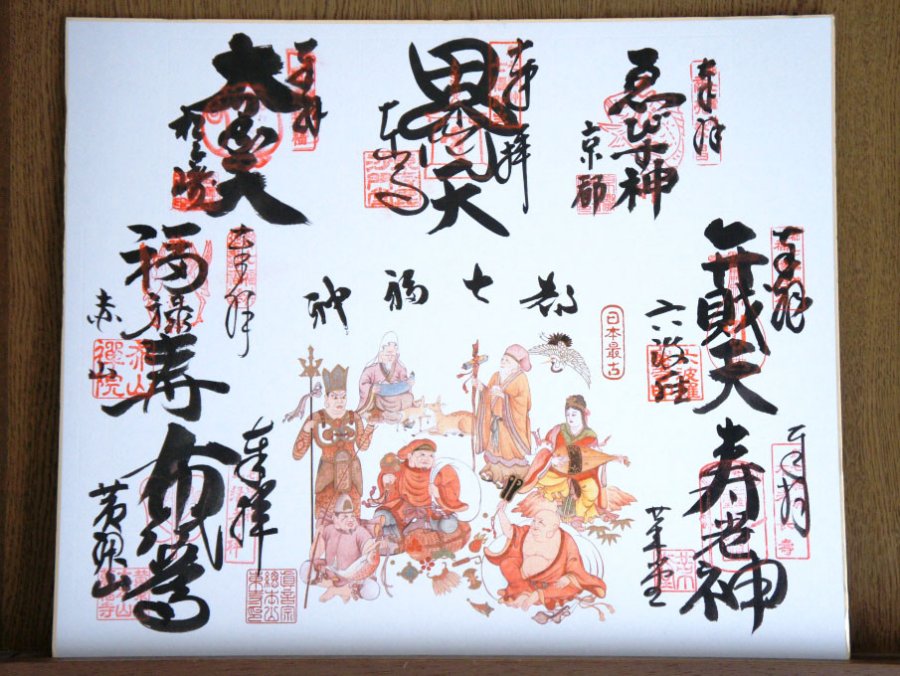 奉拝
ゑびす神
京都
奉拝
毘沙門天
奉拝
大黒天
松ヶ崎
奉拝
弁財天
六波羅
都七福神
日本最古
奉拝
福禄寿
赤山
赤山禪院
奉拝
寿老神
革堂
奉拝
布袋尊
黄檗山